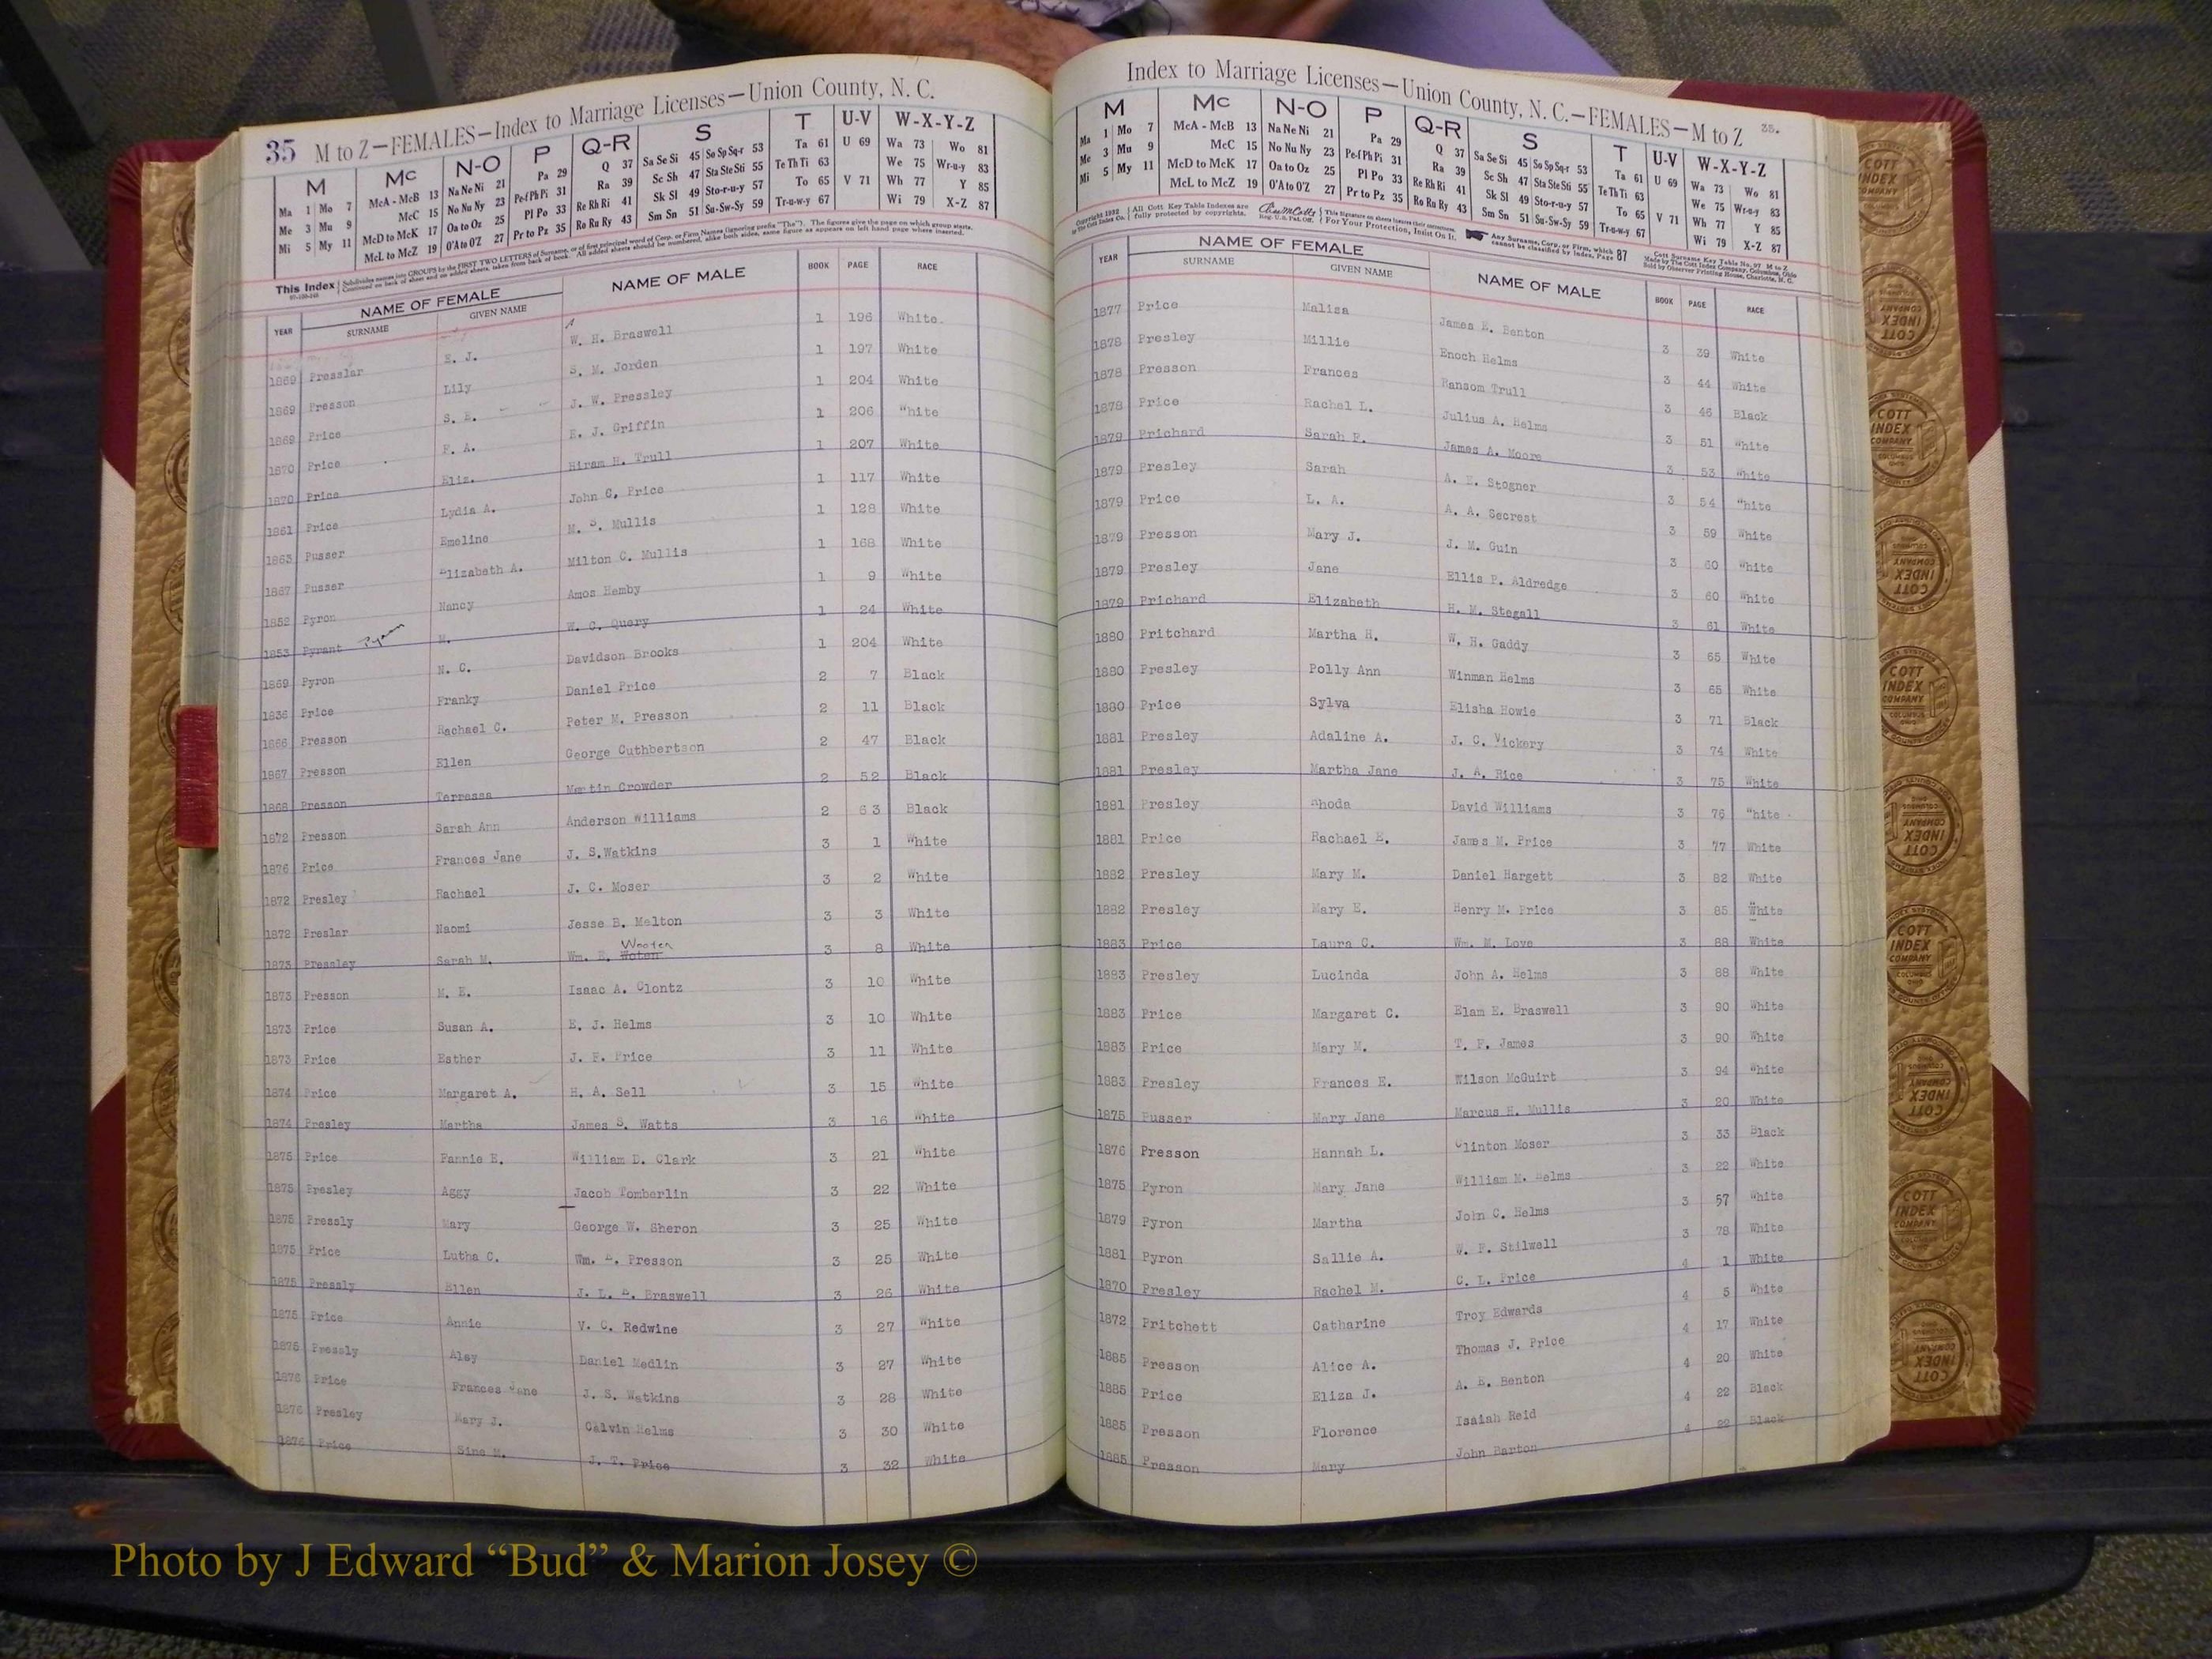 35 M to Z—FEMALES—Index to Marriage Licenses—Union County, N. C.
M Mc N-O P Q-R S T U-V W-X-Y-Z
Ma 1 Mo 7 McA - McB 13 Na Ne Ni 21 Pa 29 Q 37 Sa Se Si 45 So Sp Sq-r 53 Ta 61 U 69 Wa 73 Wo 81
Me 3 Mu 9 McC 15 No Nu Ny 23 Pe-f Ph Pi 31 Ra 39 Sc Sh 47 Sta Ste Sti 55 Te Th Ti 63 We 75 Wr-u-y 83
Mi 5 My 11 McD to McK 17 Oa to Oz 25 Pl Po 33 Re Rh Ri 41 Sk Sl 49 Sto-r-u-y 57 To 65 V 71 Wh 77 Y 85
McL to McZ 19 O'A to O'Z 27 Pr to Pz 35 Ro Ru Ry 43 Sm Sn 51 Su-Sw-Sy 59 Tr-u-w-y 67 Wi 79 X-Z 87
This Index
YEAR NAME OF FEMALE NAME OF MALE BOOK PAGE RACE
SURNAME GIVEN NAME
1869 Presslar E. J. W. H. Braswell 1 196 White
1869 Presson Lily S. M. Jorden 1 197 White
1869 Price S. E. J. W. Pressley 1 204 White
1870 Price F. A. E. J. Griffin 1 206 White
1870 Price Eliz. Hiram H. Trull 1 207 White
1861 Price Lydia A. John C. Price 1 117 White
1863 Pusser Emeline M. S. Mullis 1 128 White
1867 Pusser Elizabeth A. Milton C. Mullis 1 168 White
1852 Pyron Nancy Amos Hemby 1 9 White
1853 Pyrant Pyron M. W. C. Query 1 24 White
1869 Pyron N. C. Davidson Brooks 1 204 White
1836 Price Franky Daniel Price 2 7 Black
1866 Presson Rachael C. Peter M. Presson 2 11 Black
1867 Presson Ellen George Cuthbertson 2 47 Black
1868 Presson Terressa Martin Crowder 2 52 Black
1872 Presson Sarah Ann Anderson Williams 2 63 Black
1876 Price Frances Jane J. S.Watkins 3 1 White
1872 Presley Rachael J. C. Moser 3 2 White
1872 Preslar Naomi Jesse B. Melton 3 3 White
1873 Pressley Sarah M. Wm. B. Woten Wooten 3 8 White
1873 Presson M. E. Isaac A. Clontz 3 10 White
1873 Price Susan A. E. J. Helms 3 10 White
1873 Price Esther J. F. Price 3 11 White
1874 Price Margaret A. H. A. Sell 3 15 White
1874 Presley Martha James S. Watts 3 16 White
1875 Price Fannie E. William D. Clark 3 21 White
1875 Presley Aggy Jacob Tomberlin 3 22 White
1875 Pressly Mary George W. Sheron 3 25 White
1875 Price Lutha C. Wm. Presson 3 25 White
1875 Pressly Ellen J. L. Braswell 3 26 White
1875 Price Annie V. C. Redwine 3 27 White
1875 Pressly Alsy Daniel Medlin 3 27 White
1876 Price Frances Jane J. S. Watkins 3 28 White
1876 Presley Mary J. Calvin Helms 3 30 White
1876 Price Sine M. J. T. Price 3 32 White
Index to Marriage Licenses—Union County, N. C.—FEMALES—M to Z 35.
M Mc N-O P Q-R S T U-V W-X-Y-Z
Ma 1 Mo 7 McA - McB 13 Na Ne Ni 21 Pa 29 Q 37 Sa Se Si 45 So Sp Sq-r 53 Ta 61 U 69 Wa 73 Wo 81
Me 3 Mu 9 McC 15 No Nu Ny 23 Pe-f Ph Pi 31 Ra 39 Sc Sh 47 Sta Ste Sti 55 Te Th Ti 63 We 75 Wr-u-y 83
Mi 5 My 11 McD to McK 17 Oa to Oz 25 Pl Po 33 Re Rh Ri 41 Sk Sl 49 Sto-r-u-y 57 To 65 V 71 Wh 77 Y 85
McL to McZ 19 O'A to O'Z 27 Pr to Pz 35 Ro Ru Ry 43 Sm Sn 51 Su-Sw-Sy 59 Tr-u-w-y 67 Wi 79 X-Z 87
All Cott Key Table Indexes are fully protected by copyrights.
For Your Protection, Insist On It.
Any Surname, Corp. or Firm, which cannot be classified by Index, Page 87
YEAR NAME OF FEMALE NAME OF MALE BOOK PAGE RACE
SURNAME GIVEN NAME
1877 Price Malisa James E. Benton 3 39 White
1878 Presley Millie Enoch Helms 3 44 White
1878 Presson Frances Ransom Trull 3 46 Black
1878 Price Rachel L. Julius A. Helms 3 51 White
1879 Prichard Sarah P. James A. Moore 3 53 White
1879 Presley Sarah A. E. Stogner 3 54 White
1879 Price L. A. A. A. Secrest 3 59 White
1879 Presson Mary J. J. M. Guin 3 60 White
1879 Presley Jane Ellis P. Aldredge 3 60 White
1879 Prichard Elizabeth H. M. Stegall 3 61 White
1880 Pritchard Martha H. W. H. Gaddy 3 65 White
1880 Presley Polly Ann Winman Helms 3 65 White
1880 Price Sylva Elisha Howie 3 71 Black
1881 Presley Adaline A. J. C. Vickery 3 74 White
1881 Presley Martha Jane J. A. Rice 3 75 White
1881 Presley Rhoda David Williams 3 76 White
1881 Price Rachael E. James M. Price 3 77 White
1882 Presley Mary M. Daniel Hargett 3 82 White
1882 Presley Mary E. Henry M. Price 3 85 White
1883 Price Laura C. Wm. M. Love 3 88 White
1883 Presley Lucinda John A. Helms 3 88 White
1883 Price Margaret C. Elam E. Braswell 3 90 White
1883 Price Mary M. T. F. James 3 90 White
1883 Presley Frances E. Wilson McGuirt 3 94 White
1875 Pusser Mary Jane Marcus H. Mullis 3 20 White
1876 Presson Hannah L. Clinton Moser 3 33 Black
1875 Pyron Mary Jane William M. Helms 3 22 White
1879 Pyron Martha John C. Helms 3 57 White
1881 Pyron Sallie A. W. P. Stilwell 3 78 White
1870 Presley Rachel M. C. L. Price 4 1 White
1872 Pritchett Catharine Troy Edwards 4 5 White
1885 Presson Alice A. Thomas J. Price 4 17 White
1885 Price Eliza J. A. B. Benton 4 20 White
1885 Presson Florence Isaiah Reid 4 22 Black
1885 Presson Mary John Barton 4 22 Black
Photo by J Edward “Bud” & Marion Josey ©